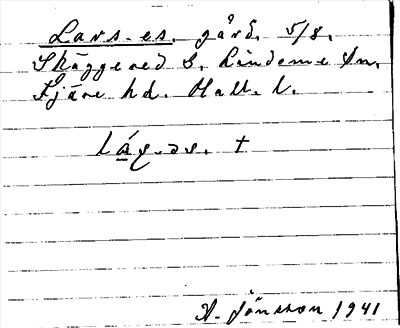 Lars-es. gård. 5/8.
Skäggered S. Lindome sn.
Fjäre hd. Hall. l.
A. Jönsson 1941